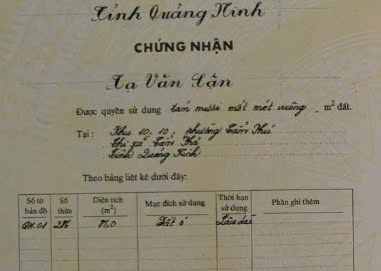 Tỉnh Quảng Ninh
CHỨNG NHẬN
Tạ Văn Tận
Được quyền sử dụng tám mươi mốt mét vuông m² đất.
Tại: Khu 10.10, phường Cẩm Phú
Thị xã Cẩm Phả
Tỉnh Quảng Ninh
Theo bảng liệt kê dưới đây:
Số tờ bản đồ
Số thửa
Diện tích (m²)
Mục đích sử dụng
Thời hạn sử dụng
Phần ghi thêm
Đất ở
Lâu dài